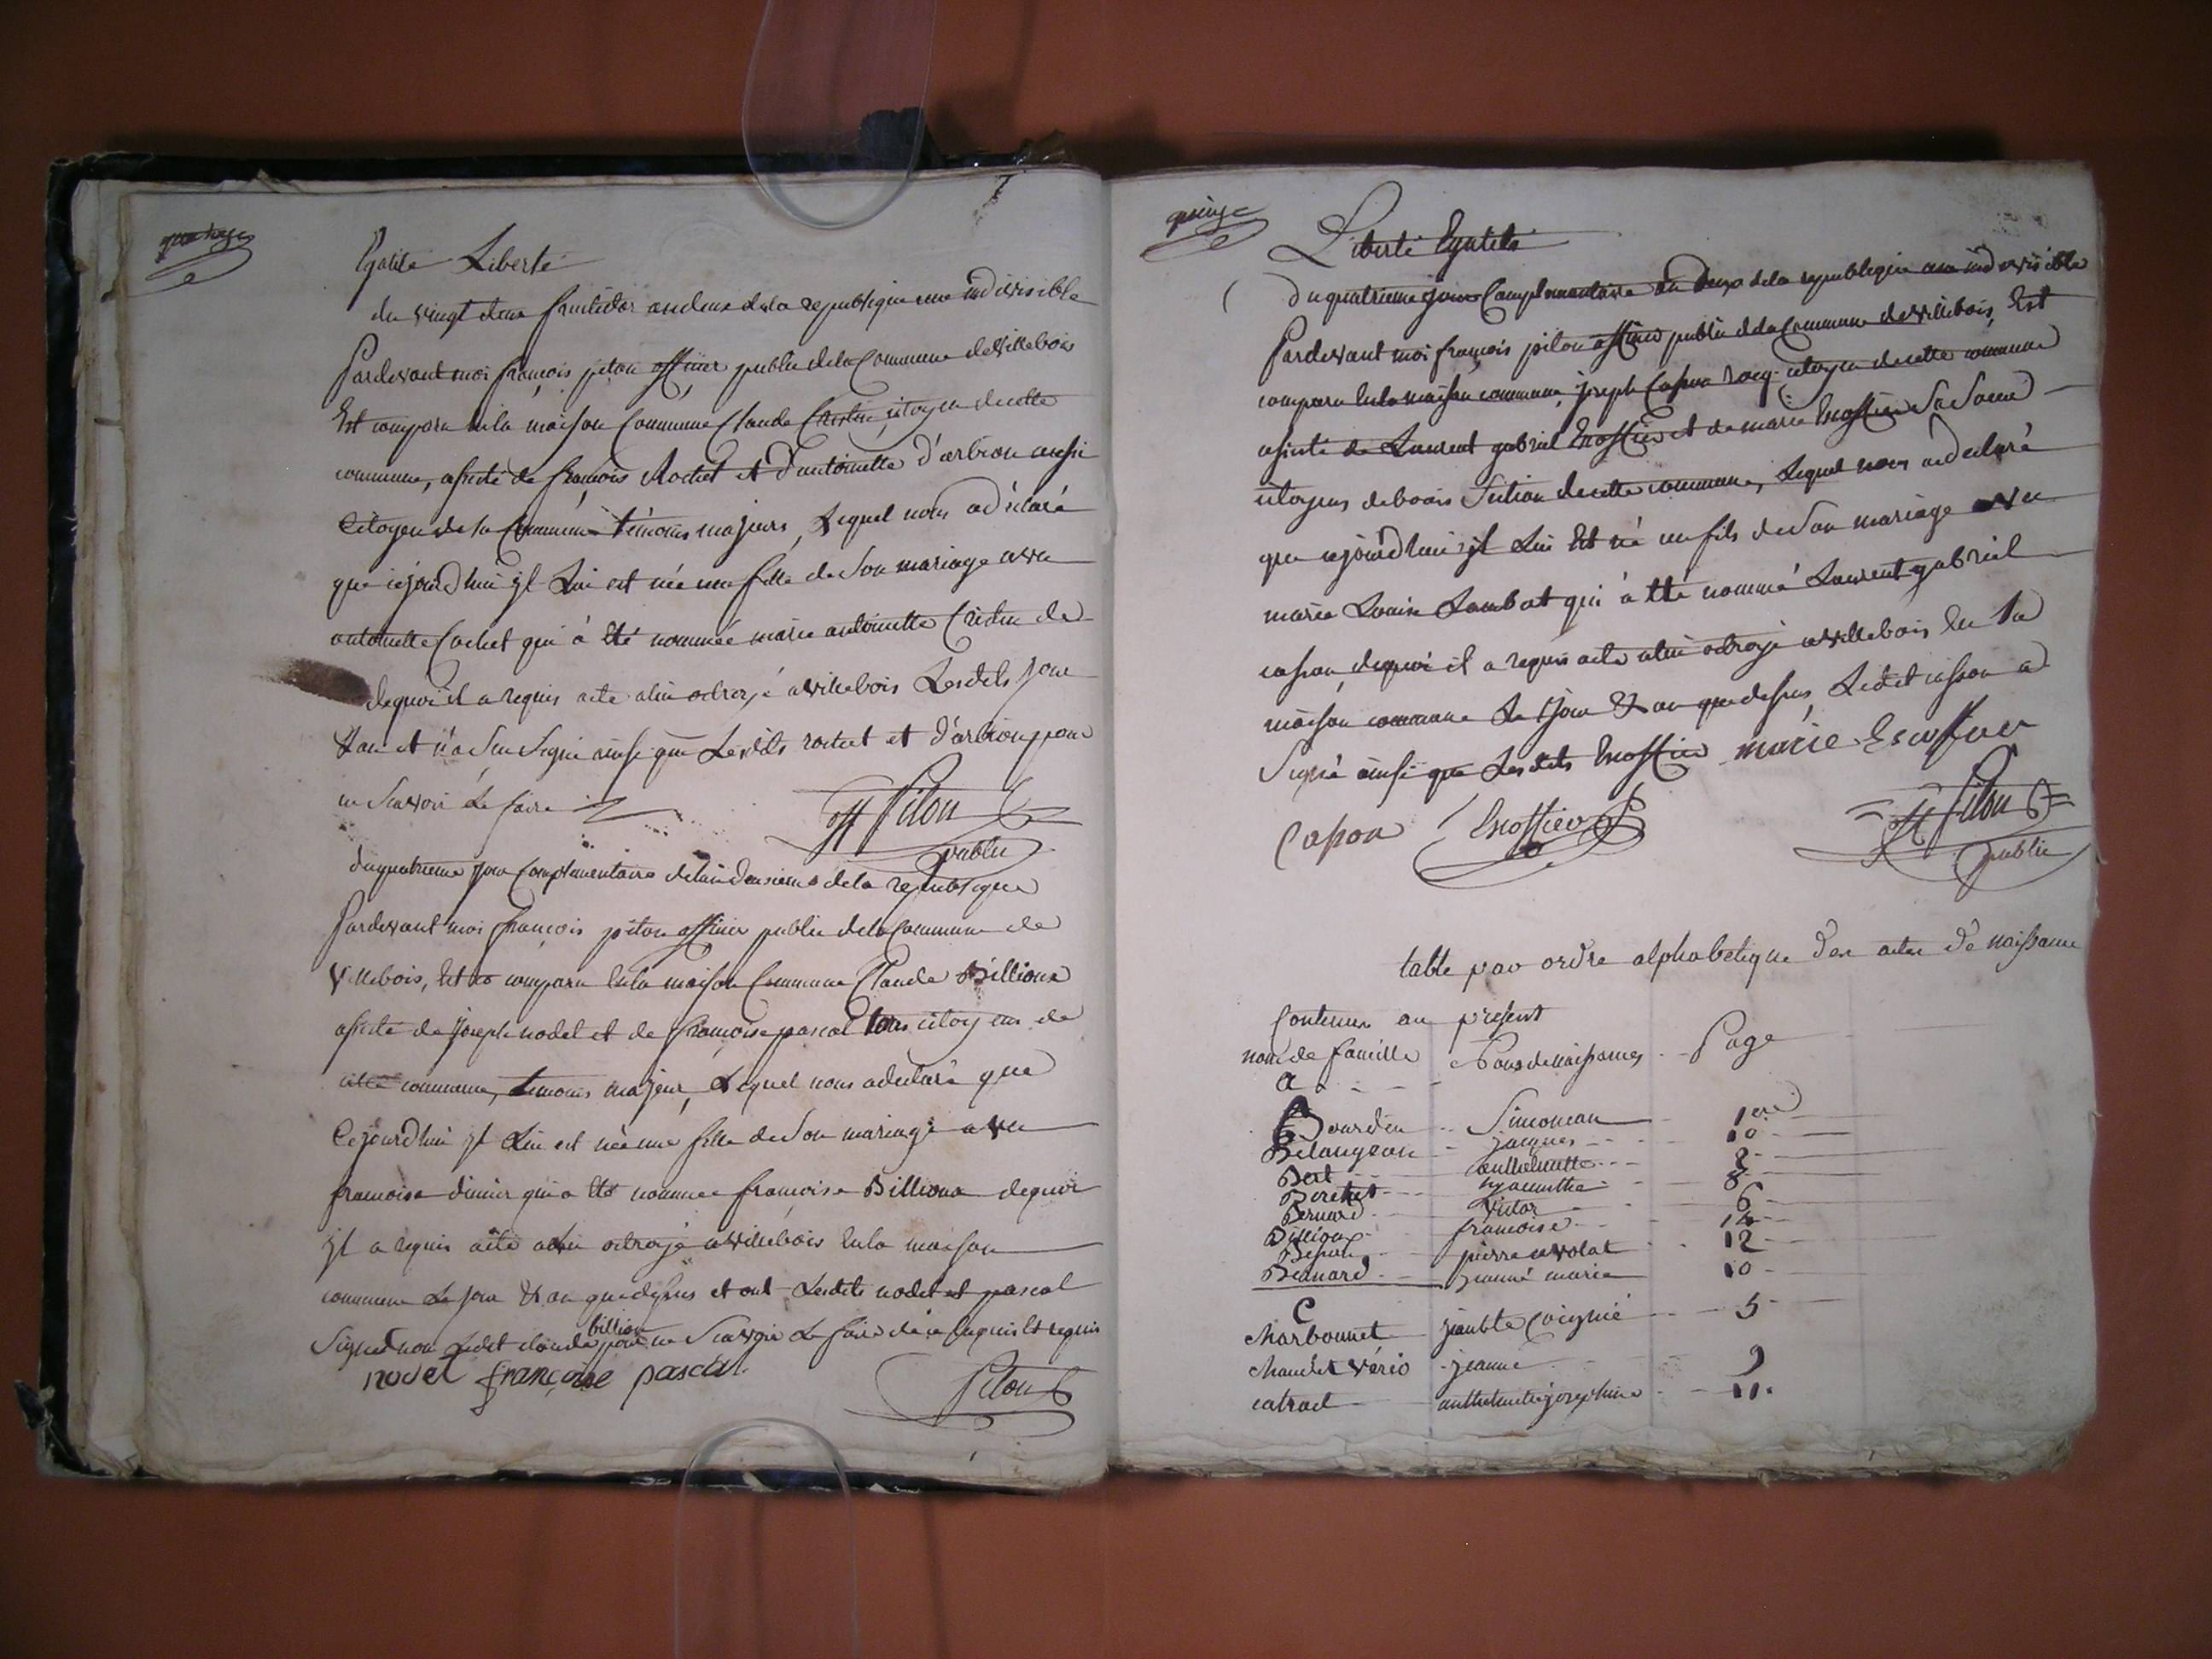 quatorze
Egalité Liberté
du vingt deux fructidor an deux de la republique une indivisible
Pardevant moi françois piton officier public de la Commune de villebois
Est comparu en la maison Commune Claude Cristin, citoyen de cette
commune, assisté de françois Rochet et d'antoinette d'arbion aussi
Citoyen de la Commune témoins majeurs, Lequel nous a déclaré
que cejourdhui jl Lui est née une fille de son mariage avec
antoinette Cochet qui à Eté nommée marie antoinette Cristin de
dequoi il a requis acte a lui octroyé a villebois Lesdits jour
& an et n'a Su Signé ainsi que Lesdits rochet et d'arbion pour
ne Scavoir Le faire
ff Piton
public
du quatrieme jour Complementaire de lan deuxieme de la republique
Pardevant moi françois piton officier public de la Commune de
villebois, Est comparu En la maison Commune Claude Billioux
assisté de Joseph nodet et de françoise pascal tous citoyens de
cette commune, temoins majeur, Lequel nous a declaré que
Cejourdhui jl Lui est née une fille de Son mariage avec
francoise dimier qui a Eté nommee francoise Billioux dequoi
jl a requis acte a lui octroyé a villebois En la maison
commune Le jour & an que dessus et ont Lesdits nodet et pascal
Signé non Ledit claude billioux pour ne Scavoir Le faire de ce Enquis Et requis
nodet françoise pascal
Piton
quinze
Liberté Egalité
Du quatrieme jour Complementaire an deux de la republique une indivisible
Pardevant moi françois piton officier public de la Commune de villebois, Est
comparu En la maison commune, joseph Casson citoyen de cette commune
assisté de Laurent gabriel Escoffier et de marie Escoffier Sa Soeur
citoyens de bouis Section de cette commune, Lequel nous a declaré
que cejourdhui jl Lui Est né un fils de Son mariage avec
marie Louise Lombat qui à Eté nommé Laurent gabriel
casson, dequoi il a requis acte a lui octroyé a villebois En la
maison commune Le jour & an que dessus, Ledit casson a
Signé ainsi que Lesdits Escoffier marie Escoffier
Casson Escoffier
ff Piton
public
table par ordre alphabetique des actes de naissance
Contenus au present
nom de famille Nons de naissances Page
a
Bourdin Simonean 1ere
Belangeon jacques 10
Bert anthelmette 2
Berthet hyacinthe 8
Bernard Victor 6
Billioux francoise 14
pierre 12
Bernard jeanne marie 10
C
Charbonnet 5
jeanne 9
catraud anthelmette josephine 11